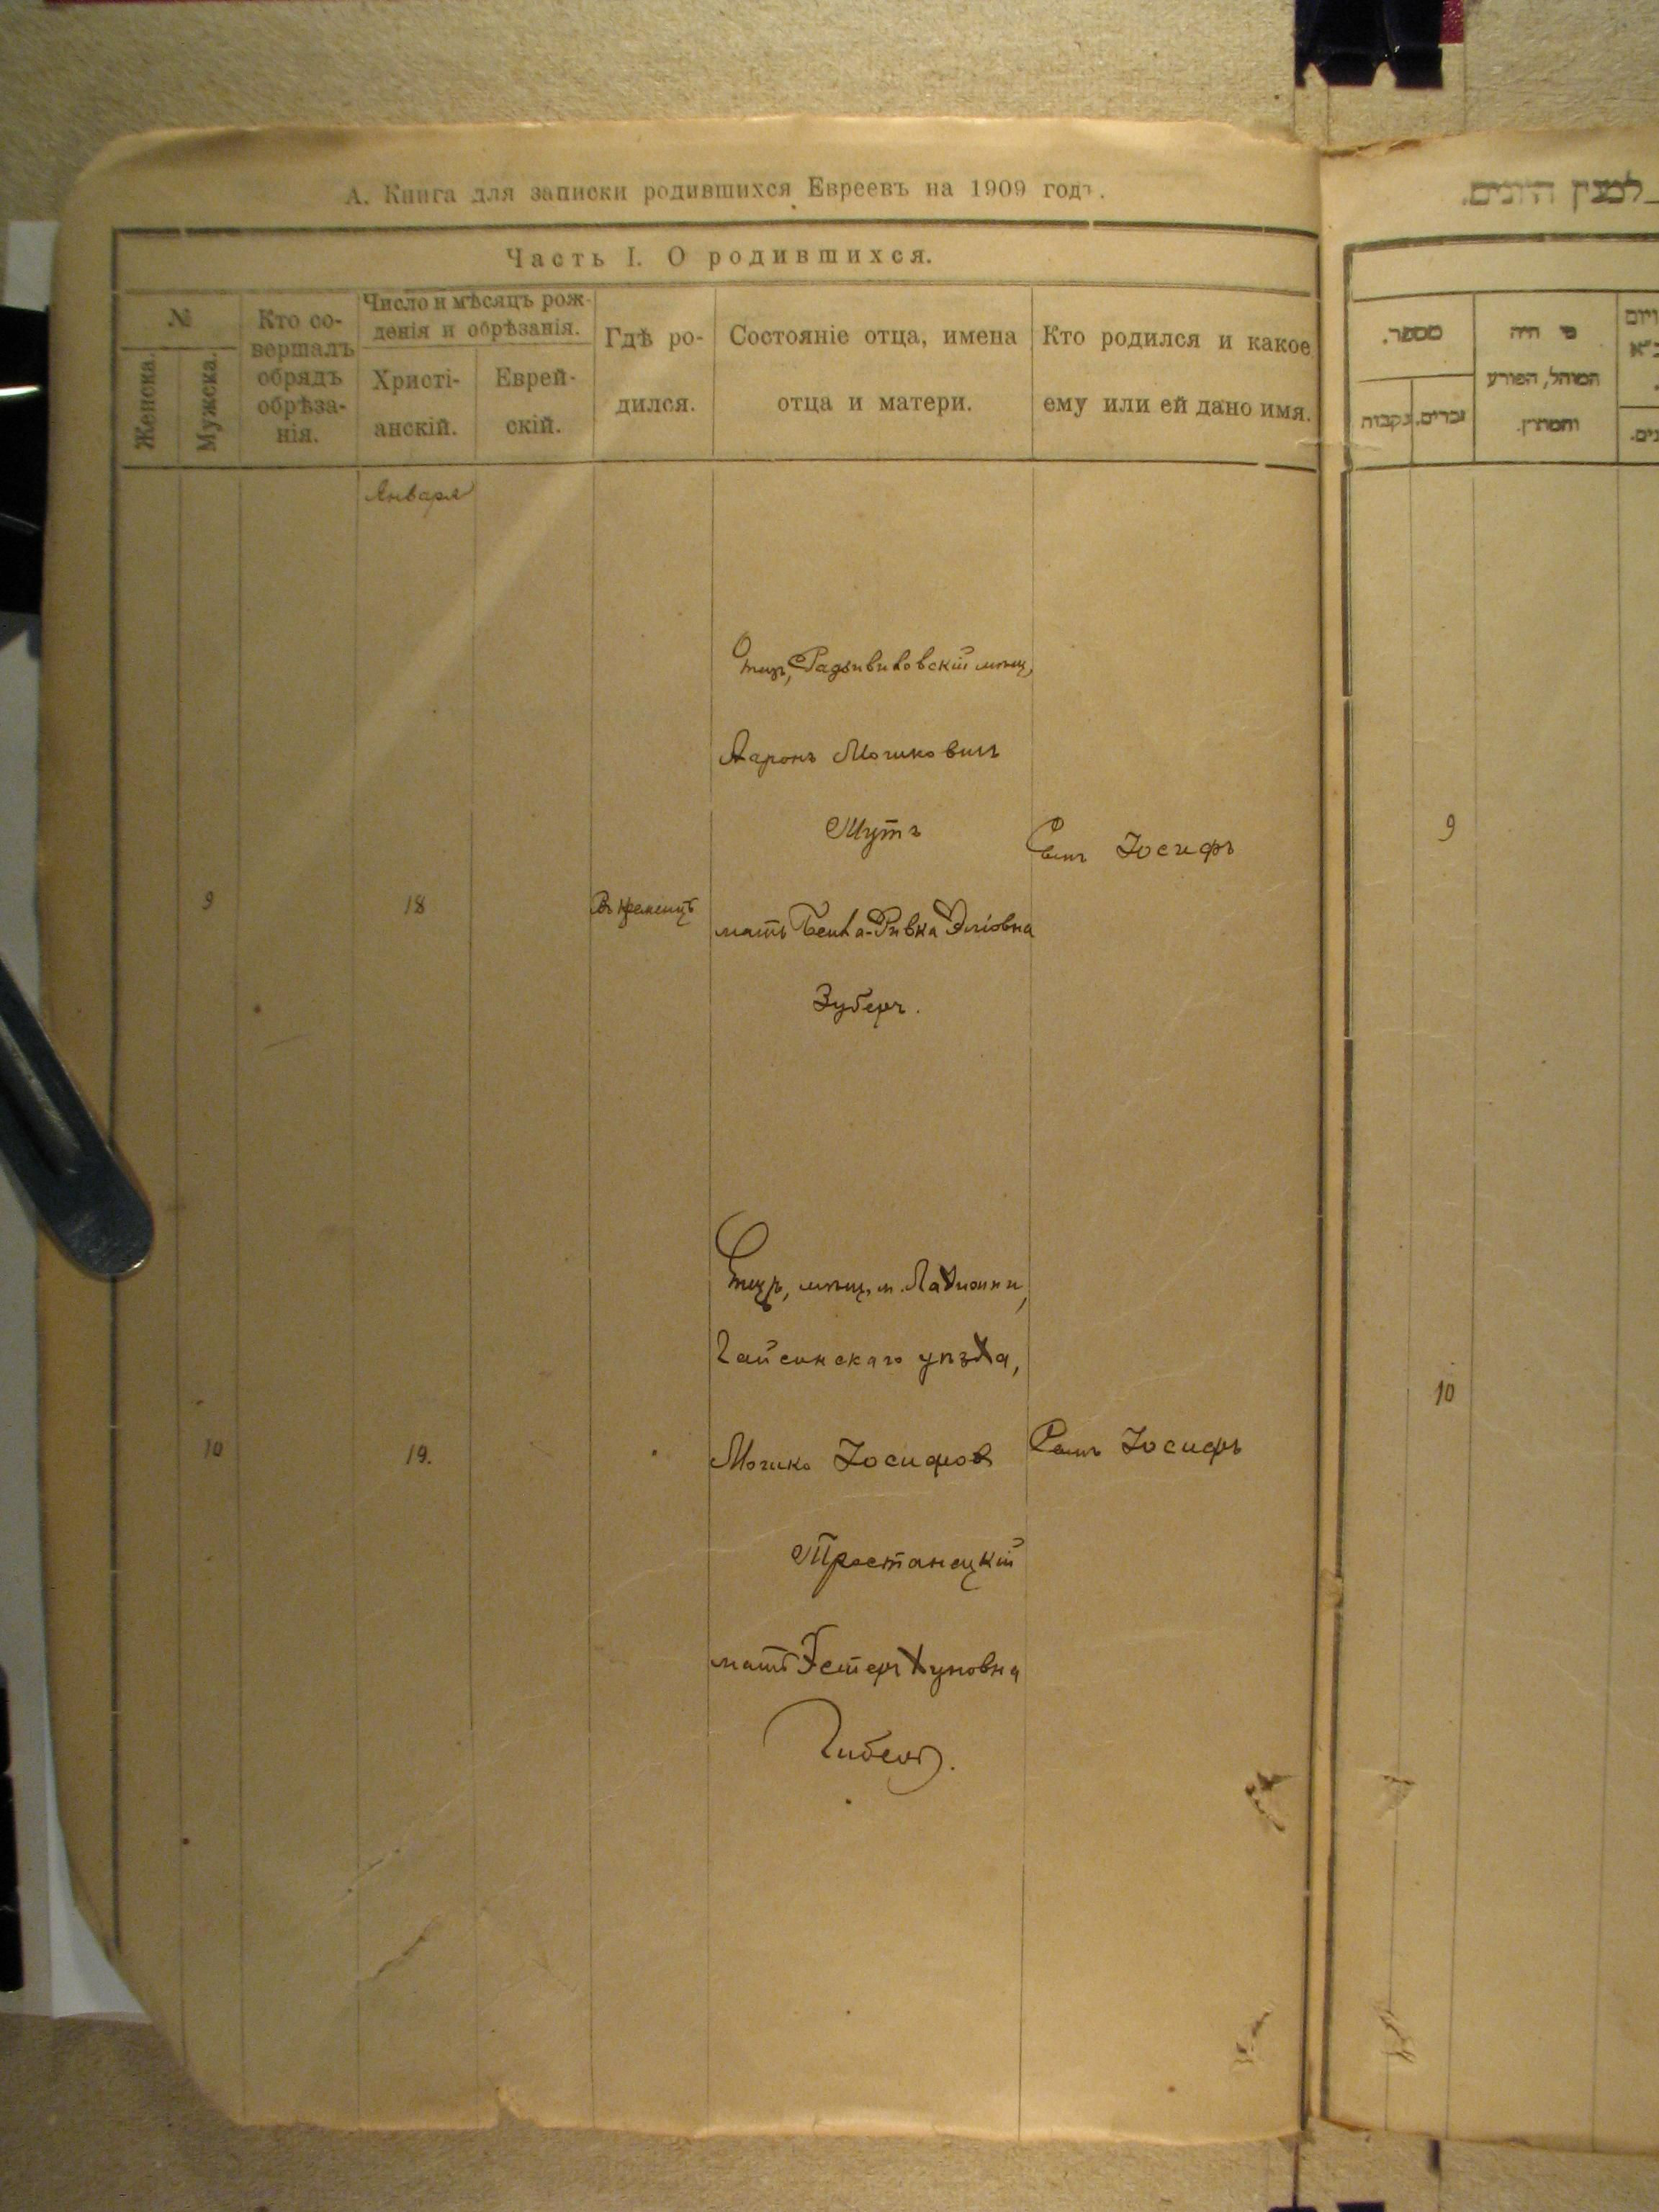 А. Книга для записки родившихся Евреевъ на 1909 годъ.
Часть I. О родившихся.
№
Женска.
Мужска.
Кто со-
вершалъ
обрядъ
обрѣза-
нія.
Число и мѣсяцъ рож-
денія и обрѣзанія.
Христі-
анскій.
Еврей-
скій.
Гдѣ ро-
дился.
Состояніе отца, имена
отца и матери.
Кто родился и какое
ему или ей дано имя.
Января
9
18
Въ Кременцѣ
Отецъ, Радзивиловскій мѣщ,
Ааронъ Мошковичъ
Шутъ
мать Бейла-Ривка Эліовна
Зуберъ.
Сынъ Іосифъ
10
19.
Отецъ, мѣщ. м. Ладыжни,
Гайсинскаго уѣзда,
Мошко Іосифов
Тростанецкій
мать Эстеръ Хуновна
Сынъ Іосифъ
מספר.
נקבות
זכרים.
מי היה
המוהל, הפורע
והמוצץ.
9
10